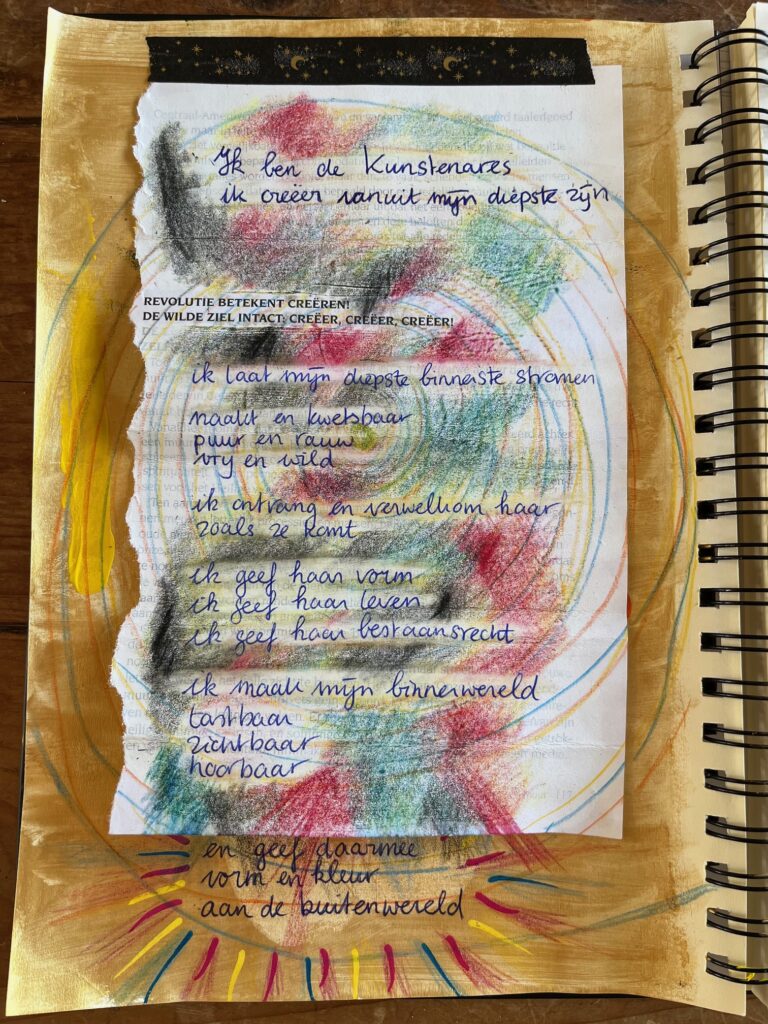 Ik ben de Kunstenares
ik creëer vanuit mijn diepste zijn
REVOLUTIE BETEKENT CREËREN!
DE WILDE ZIEL INTACT: CREËER, CREËER, CREËER!
ik laat mijn diepste binnenste stromen
naakt en kwetsbaar
puur en rauw
vrij en wild
ik ontvang en verwelkom haar
zoals ze komt
ik geef haar vorm
ik geef haar leven
ik geef haar bestaansrecht
ik maak mijn binnenwereld
tastbaar
zichtbaar
hoorbaar
en geef daarmee
vorm en kleur
aan de buitenwereld